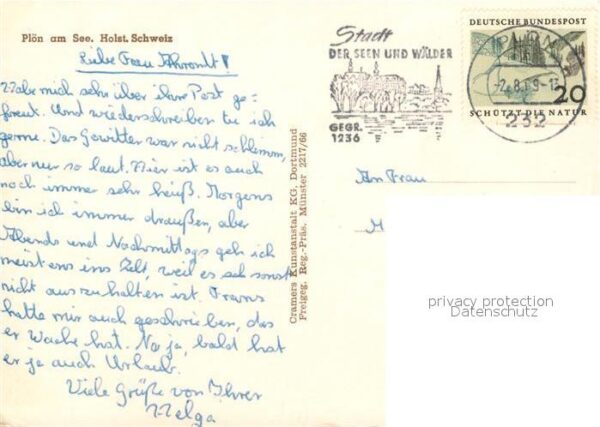 Plön am See. Holst. Schweiz
Liebe Frau !
Habe mich sehr über ihre Post ge=
freut. Und wiederschreiben tu ich
gerne. Das Gewitter war nicht schlimm,
aber nur so laut. Hier ist es auch
noch immer sehr heiß. Morgens
bin ich immer draußen, aber
Abends und Nachmittags geh ich
meistens ins Zelt, weil es sch sonst
nicht auszuhalten ist. Frans
hatte mir auch geschrieben, das
er Wache hat. Na ja, bald hat
er ja auch Urlaub.
Viele Grüße von Ihrer
Helga
Cramers Kunstanstalt KG. Dortmund
Freigeg. Reg.-Präs. Münster 2217/66
Stadt
DER SEEN UND WÄLDER
GEGR.
1236
DEUTSCHE BUNDESPOST
20
SCHÜTZT DIE NATUR
232
An Frau
privacy protection
Datenschutz